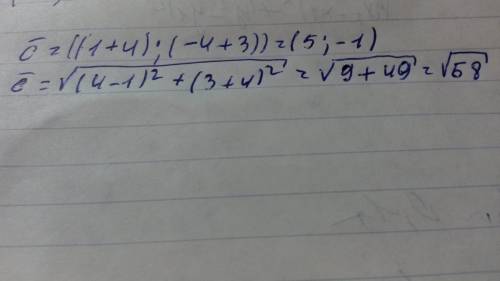 c̄ = ((1+4); (-4+3)) = (5; -1)
c̄ = √(4-1)² + (3+4)² = √9+49 = √58